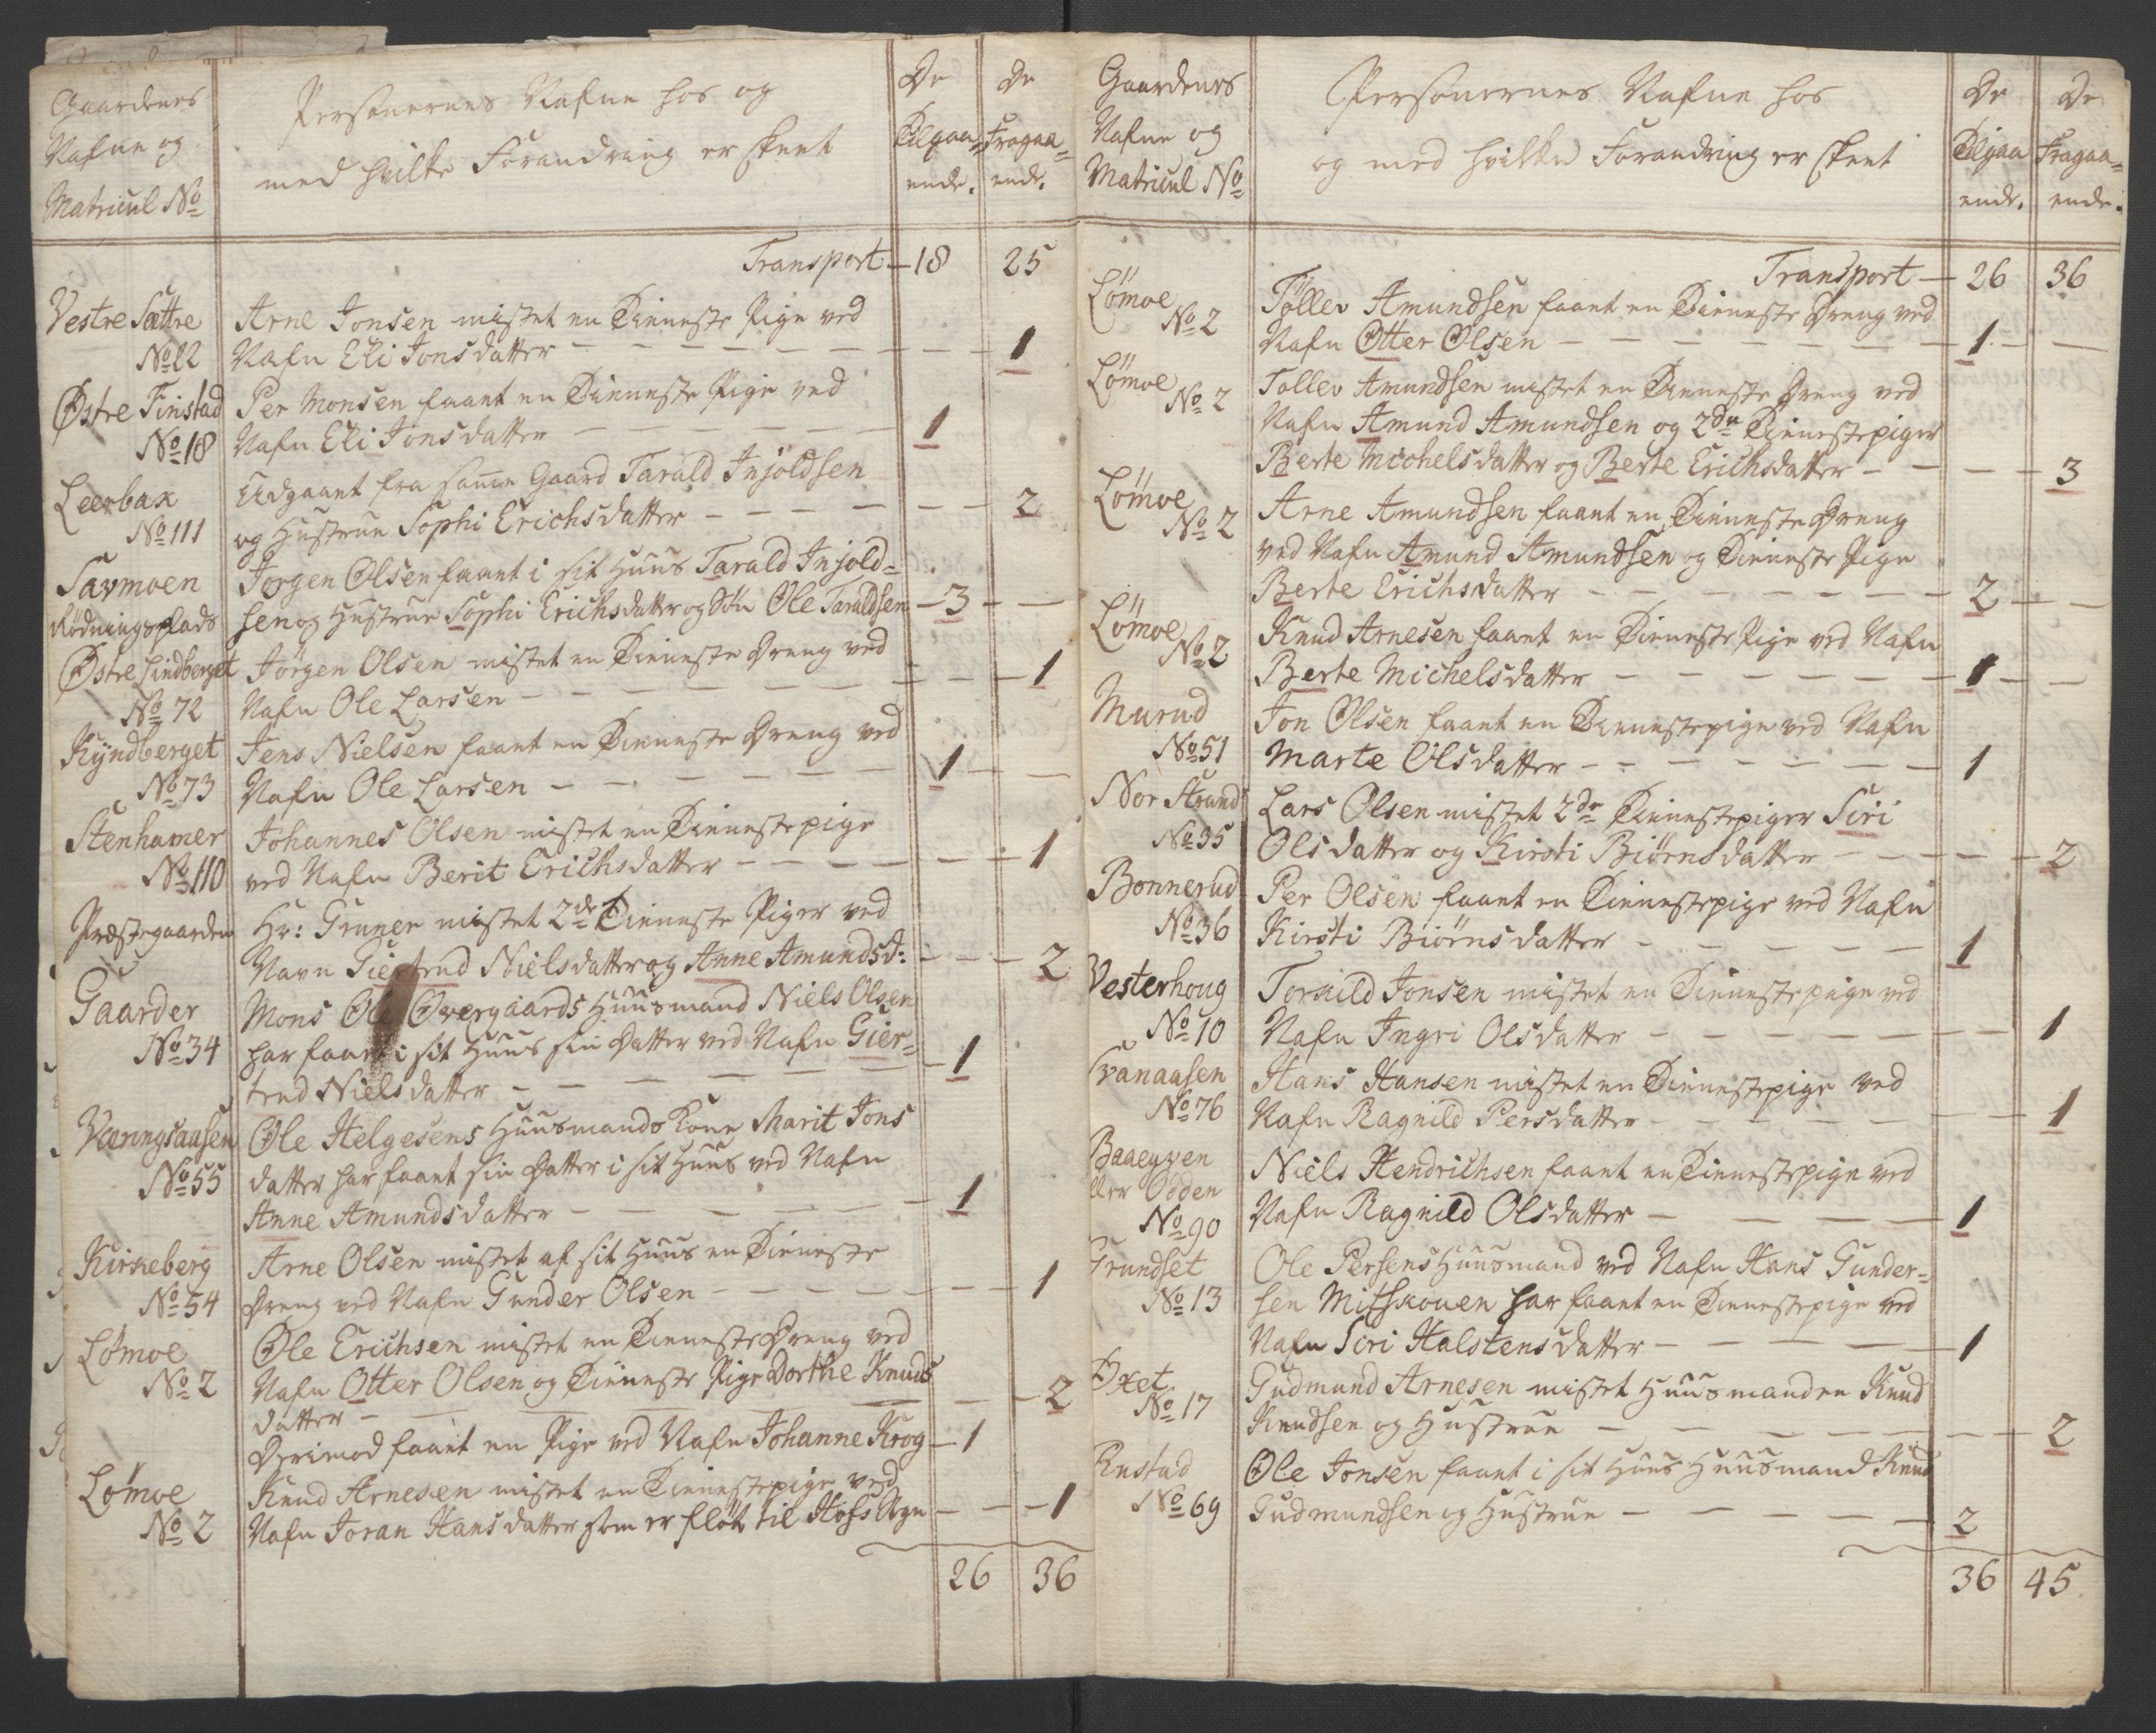 Gaardenes
Nafne og
Matricul No
Personernes Nafne hos og
med hvilke Forandring er skeet
De
Tilgaa=
ende.
De
Fragaa=
ende.
Transport - 18 25
Vestre Sættre
No 22
Arne Jonsen mistet en Tienneste Pige ved
Nafn Eli Jonsdatter - 1
Østre Finstad
No 18
Per Monsen faaet en Tienneste Pige ved
Nafn Eli Jonsdatter - 1
Leerbak
No 111
Udgaaet fra samme Gaard Tarald Injoldsen
og Hustrue Sophi Erichsdatter - 2
Savmoen
Rødningsplads
Jørgen Olsen faaet i sit Huus Tarald Injold=
sen og Hustrue Sophi Erichsdatter og Søn Ole Taraldsen - 3
Østre Lindberget
No 72
Jørgen Olsen mistet en Tienneste Dreng ved
Nafn Ole Larsen - 1
Kyndberget
No 73
Jens Nielsen faaet en Tienneste Dreng ved
Nafn Ole Larsen - 1
Stenhamer
No 110
Johannes Olsen mistet en Tiennestepige
ved Nafn Berit Erichsdatter - 1
Præstegaarden
Hr: Gruner mistet 2de Tienneste Piger ved
Navn Giertrud Nielsdatter og Anne Amundsd: - 2
Gaarder
No 34
Mons Ole Overgaards Huusmand Niels Olsen
har faaet i sit Huus sin Datter ved Nafn Gier=
trud Nielsdatter - 1
Væringsaasen
No 55
Ole Helgesens Huusmands Kone Marit Jons
datter har faaet sin Datter i sit Huus ved Nafn
Anne Amundsdatter - 1
Kirkeberg
No 54
Arne Olsen mistet af sit Huus en Tieneste
Dreng ved Nafn Gunder Olsen - 1
Lømoe
No 2
Ole Erichsen mistet en Tienneste Dreng ved
Nafn Otter Olsen og Tienneste Pige Dorthe Knuds
datter - 2
Derimod faaet en Pige ved Nafn Johanne Krog - 1
Lømoe
No 2
Knud Arnesen mistet en Tiennestepige ved
Nafn Joran Hansdatter som er fløt til Hofs Agn - 1
26 36
Gaardenes
Nafne og
Matricul No
Personernes Nafne hos
og med hvilken Forandring er skeet
De
Tilgaa
ende.
De
Fragaa=
ende.
Transport - 26 36
Lømoe
No 2
Tollev Amundsen faaet en Tienneste Dreng ved
Nafn Otter Olsen - 1
Lømoe
No 2
Tollev Amundsen mistet en Tienneste Dreng ved
Nafn Amund Amundsen og 2de Tiennestepiger
Berte Michelsdatter og Berte Erichsdatter - 3
Lømoe
No 2
Arne Amundsen faaet en Tienneste Dreng
ved Nafn Amund Amundsen og Tienneste Pige
Berte Erichsdatter - 2
Lømoe
No 2
Knud Arnesen faaet en Tienneste Pige ved Nafn
Berte Michelsdatter - 1
Murud
No 51
Jon Olsen faaet en Tiennestepige ved Nafn
Marte Olsdatter - 1
Nor Strand
No 35
Lars Olsen mistet 2de Tiennestepiger Siri
Olsdatter og Kirsti Biørnsdatter - 2
Bonnerud
No 36
Per Olsen faaet en Tiennestepige ved Nafn
Kirsti Biørnsdatter - 1
Vesterhoug
No 10
Torkild Jonsen mistet en Tiennestepige ved
Nafn Ingri Olsdatter - 1
Svanaasen
No 76
Hans Hansen mistet en Tiennestepige ved
Nafn Ragnild Persdatter - 1
eller Odden
No 90
Niels Hendrichsen faaet en Tiennestepige ved
Nafn Ragnild Olsdatter - 1
Grundset
No 13
Ole Persens Huusmand ved Nafn Hans Gunder=
sen Mitskouen har faaet en Tiennestepige ved
Nafn Siri Halstensdatter - 1
No 17
Gudmund Arnesen mistet Huusmanden Knud
Knudsen og Hustrue - 2
No 69
Ole Jonsen faaet i sit Huus Huusmand Knud
Gudmundsen og Hustrue - 2
36 45